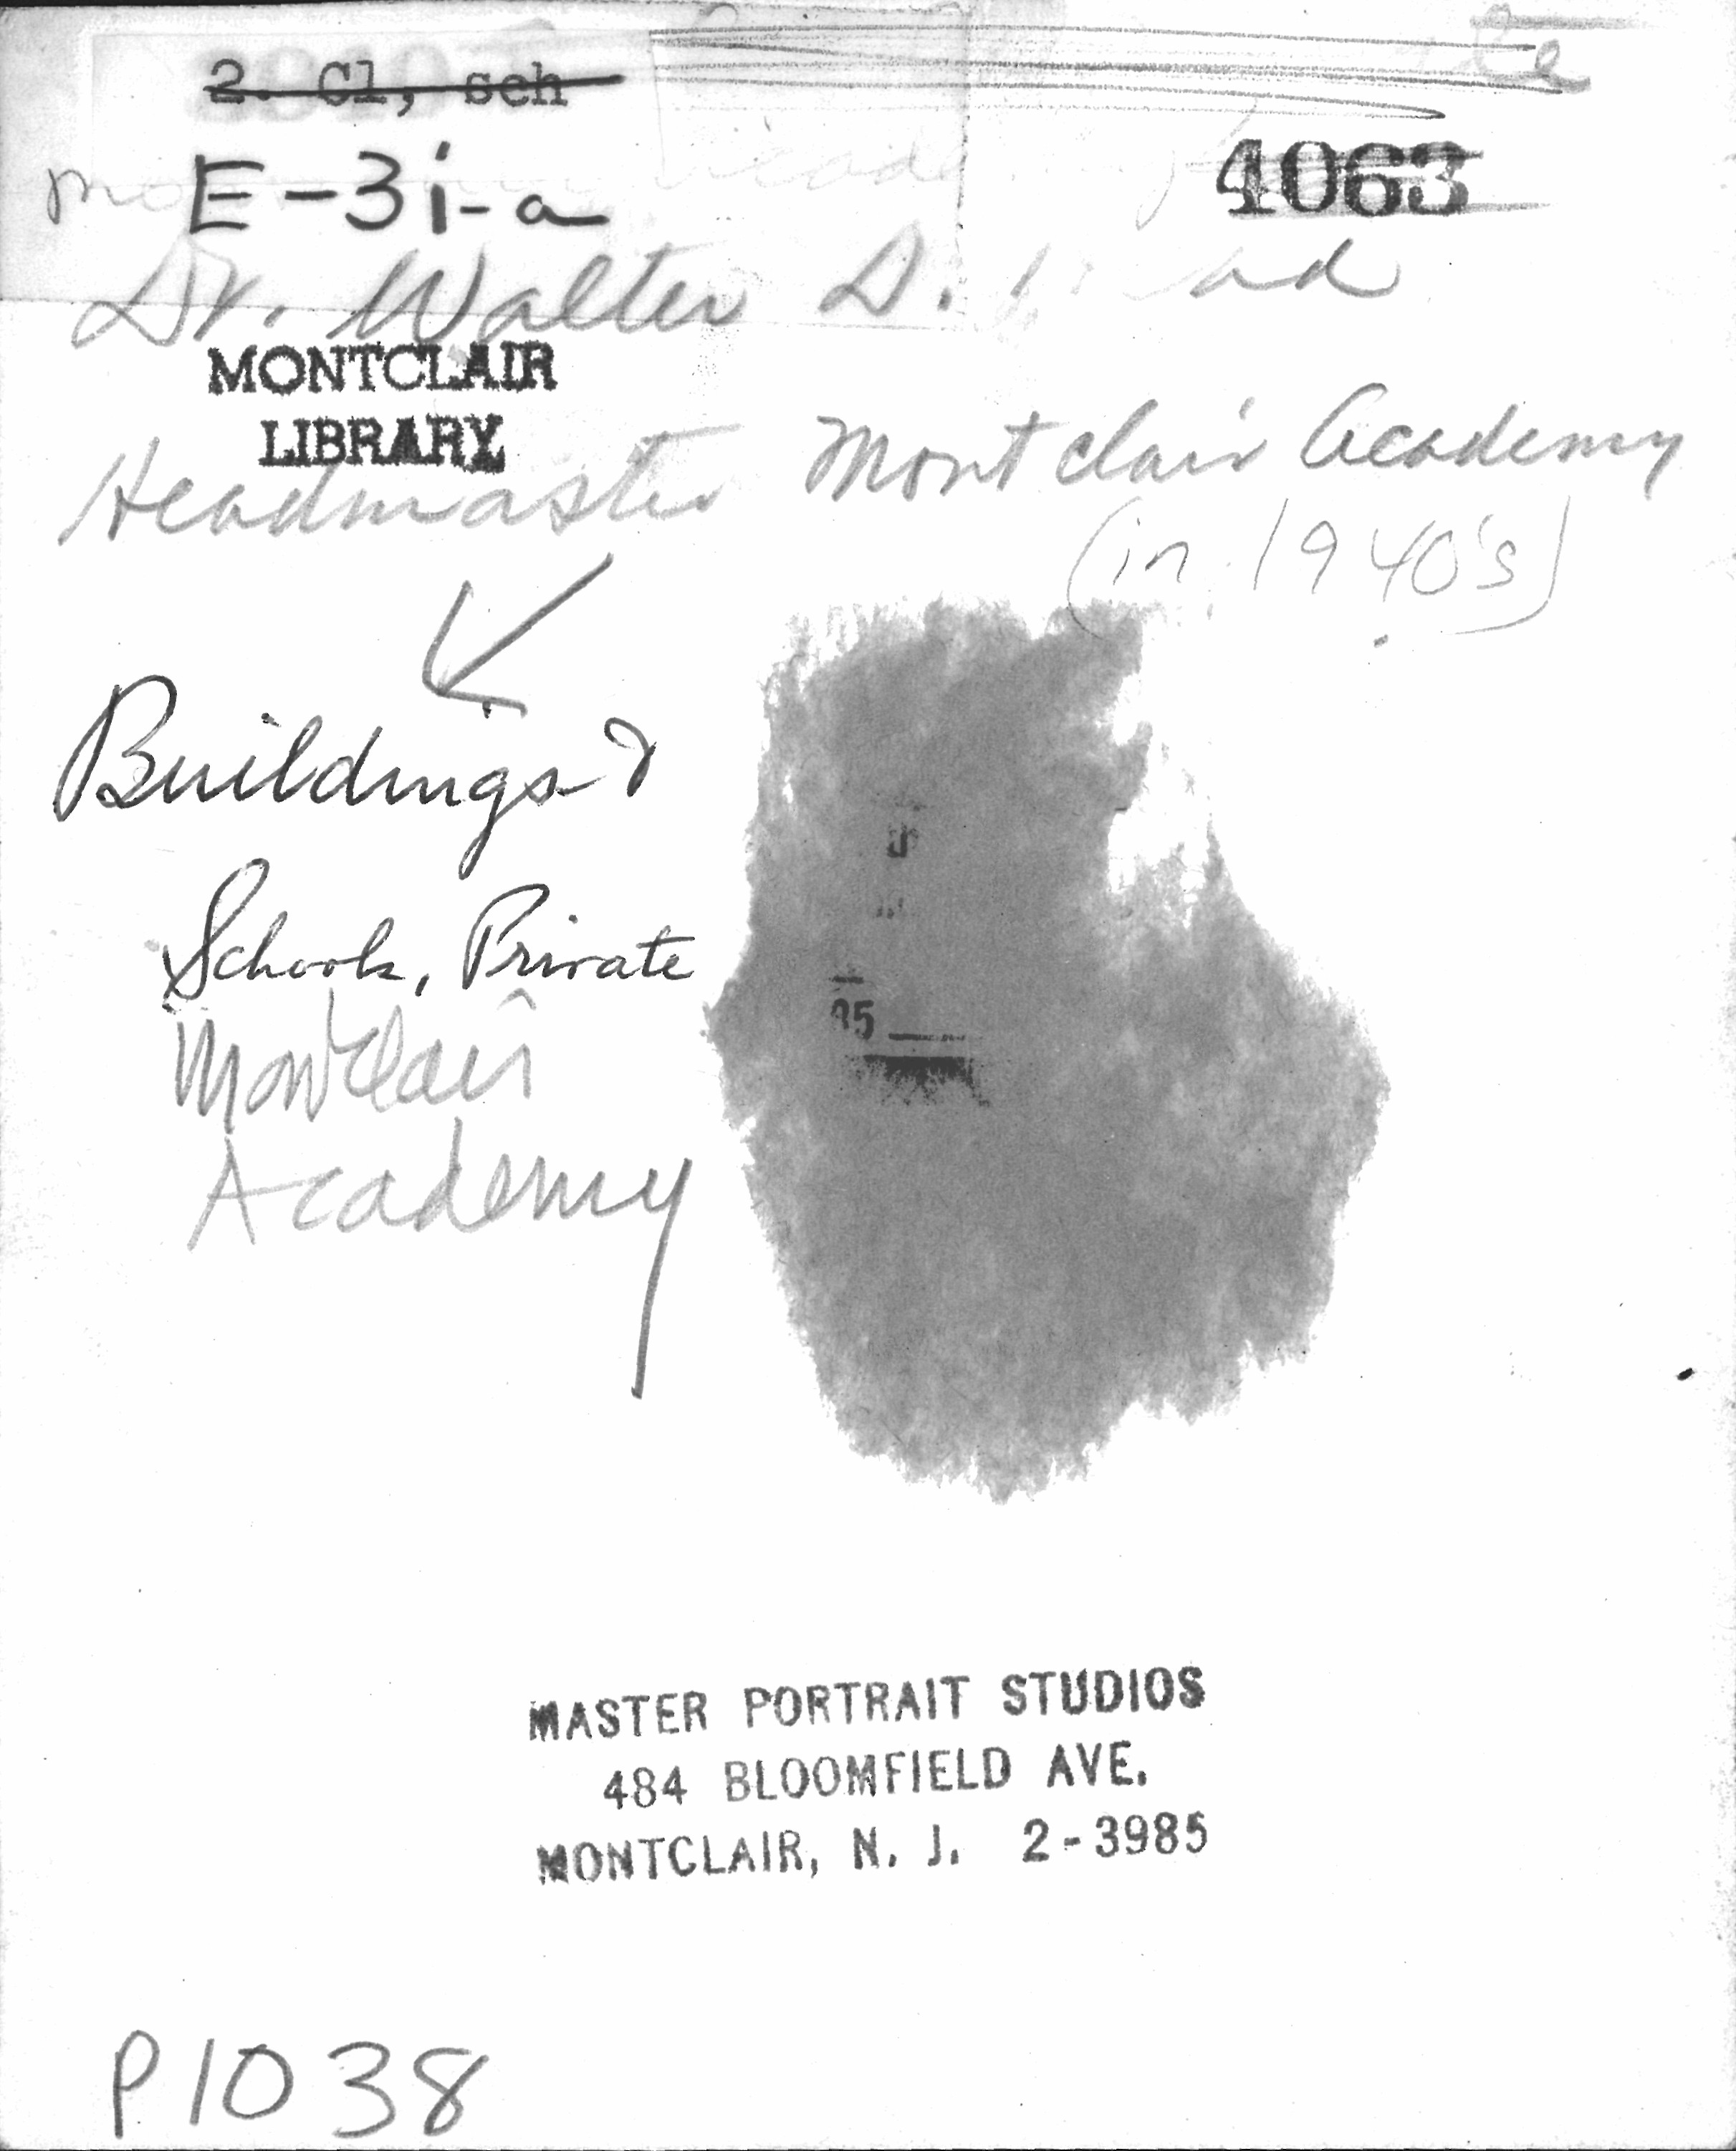 2. Cl, sch
E-3i-a
4063
Dr. Walter D.
MONTCLAIR
LIBRARY
Headmaster Montclair Academy
(in 1940's)
Buildings &
Schools, Private
Montclair
Academy
85
MASTER PORTRAIT STUDIOS
484 BLOOMFIELD AVE.
MONTCLAIR, N. J. 2-3985
P1038